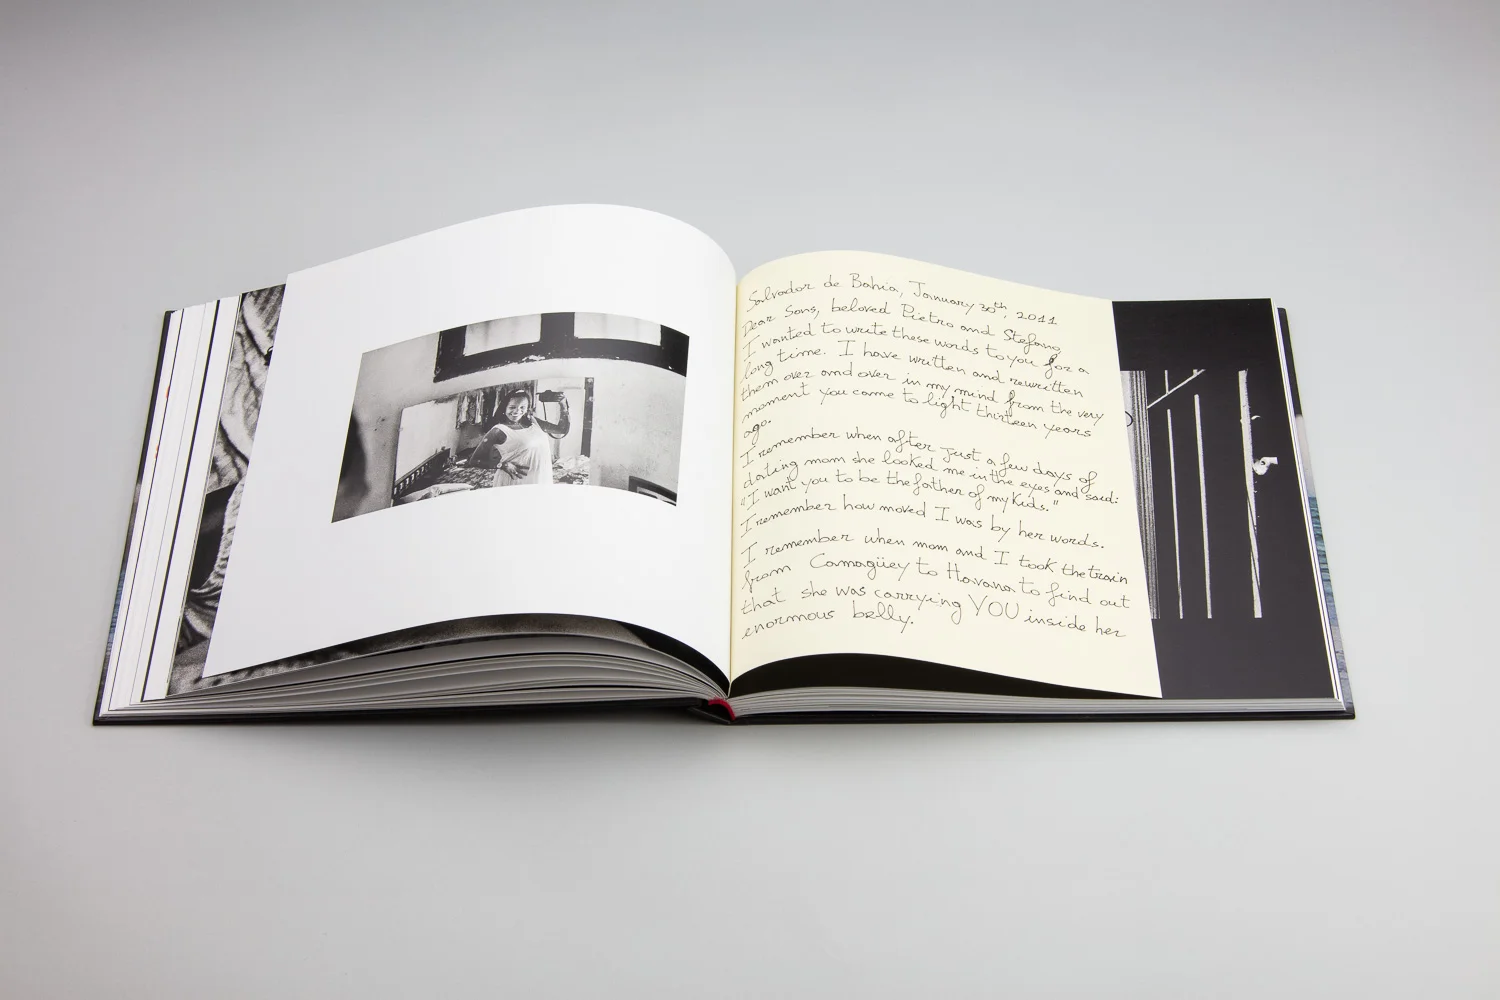 Salvador de Bahia, January 30th, 2011
Dear Sons, beloved Pietro and Stefano
I wanted to write these words to you for a
long time. I have written and rewritten
them over and over in my mind from the very
moment you came to light thirteen years
ago.
I remember when after just a few days of
dating mom she looked me in the eyes and said:
"I want you to be the father of my kids."
I remember how moved I was by her words.
I remember when mom and I took the train
from Camagüey to Havana to find out
that she was carrying YOU inside her
enormous belly.